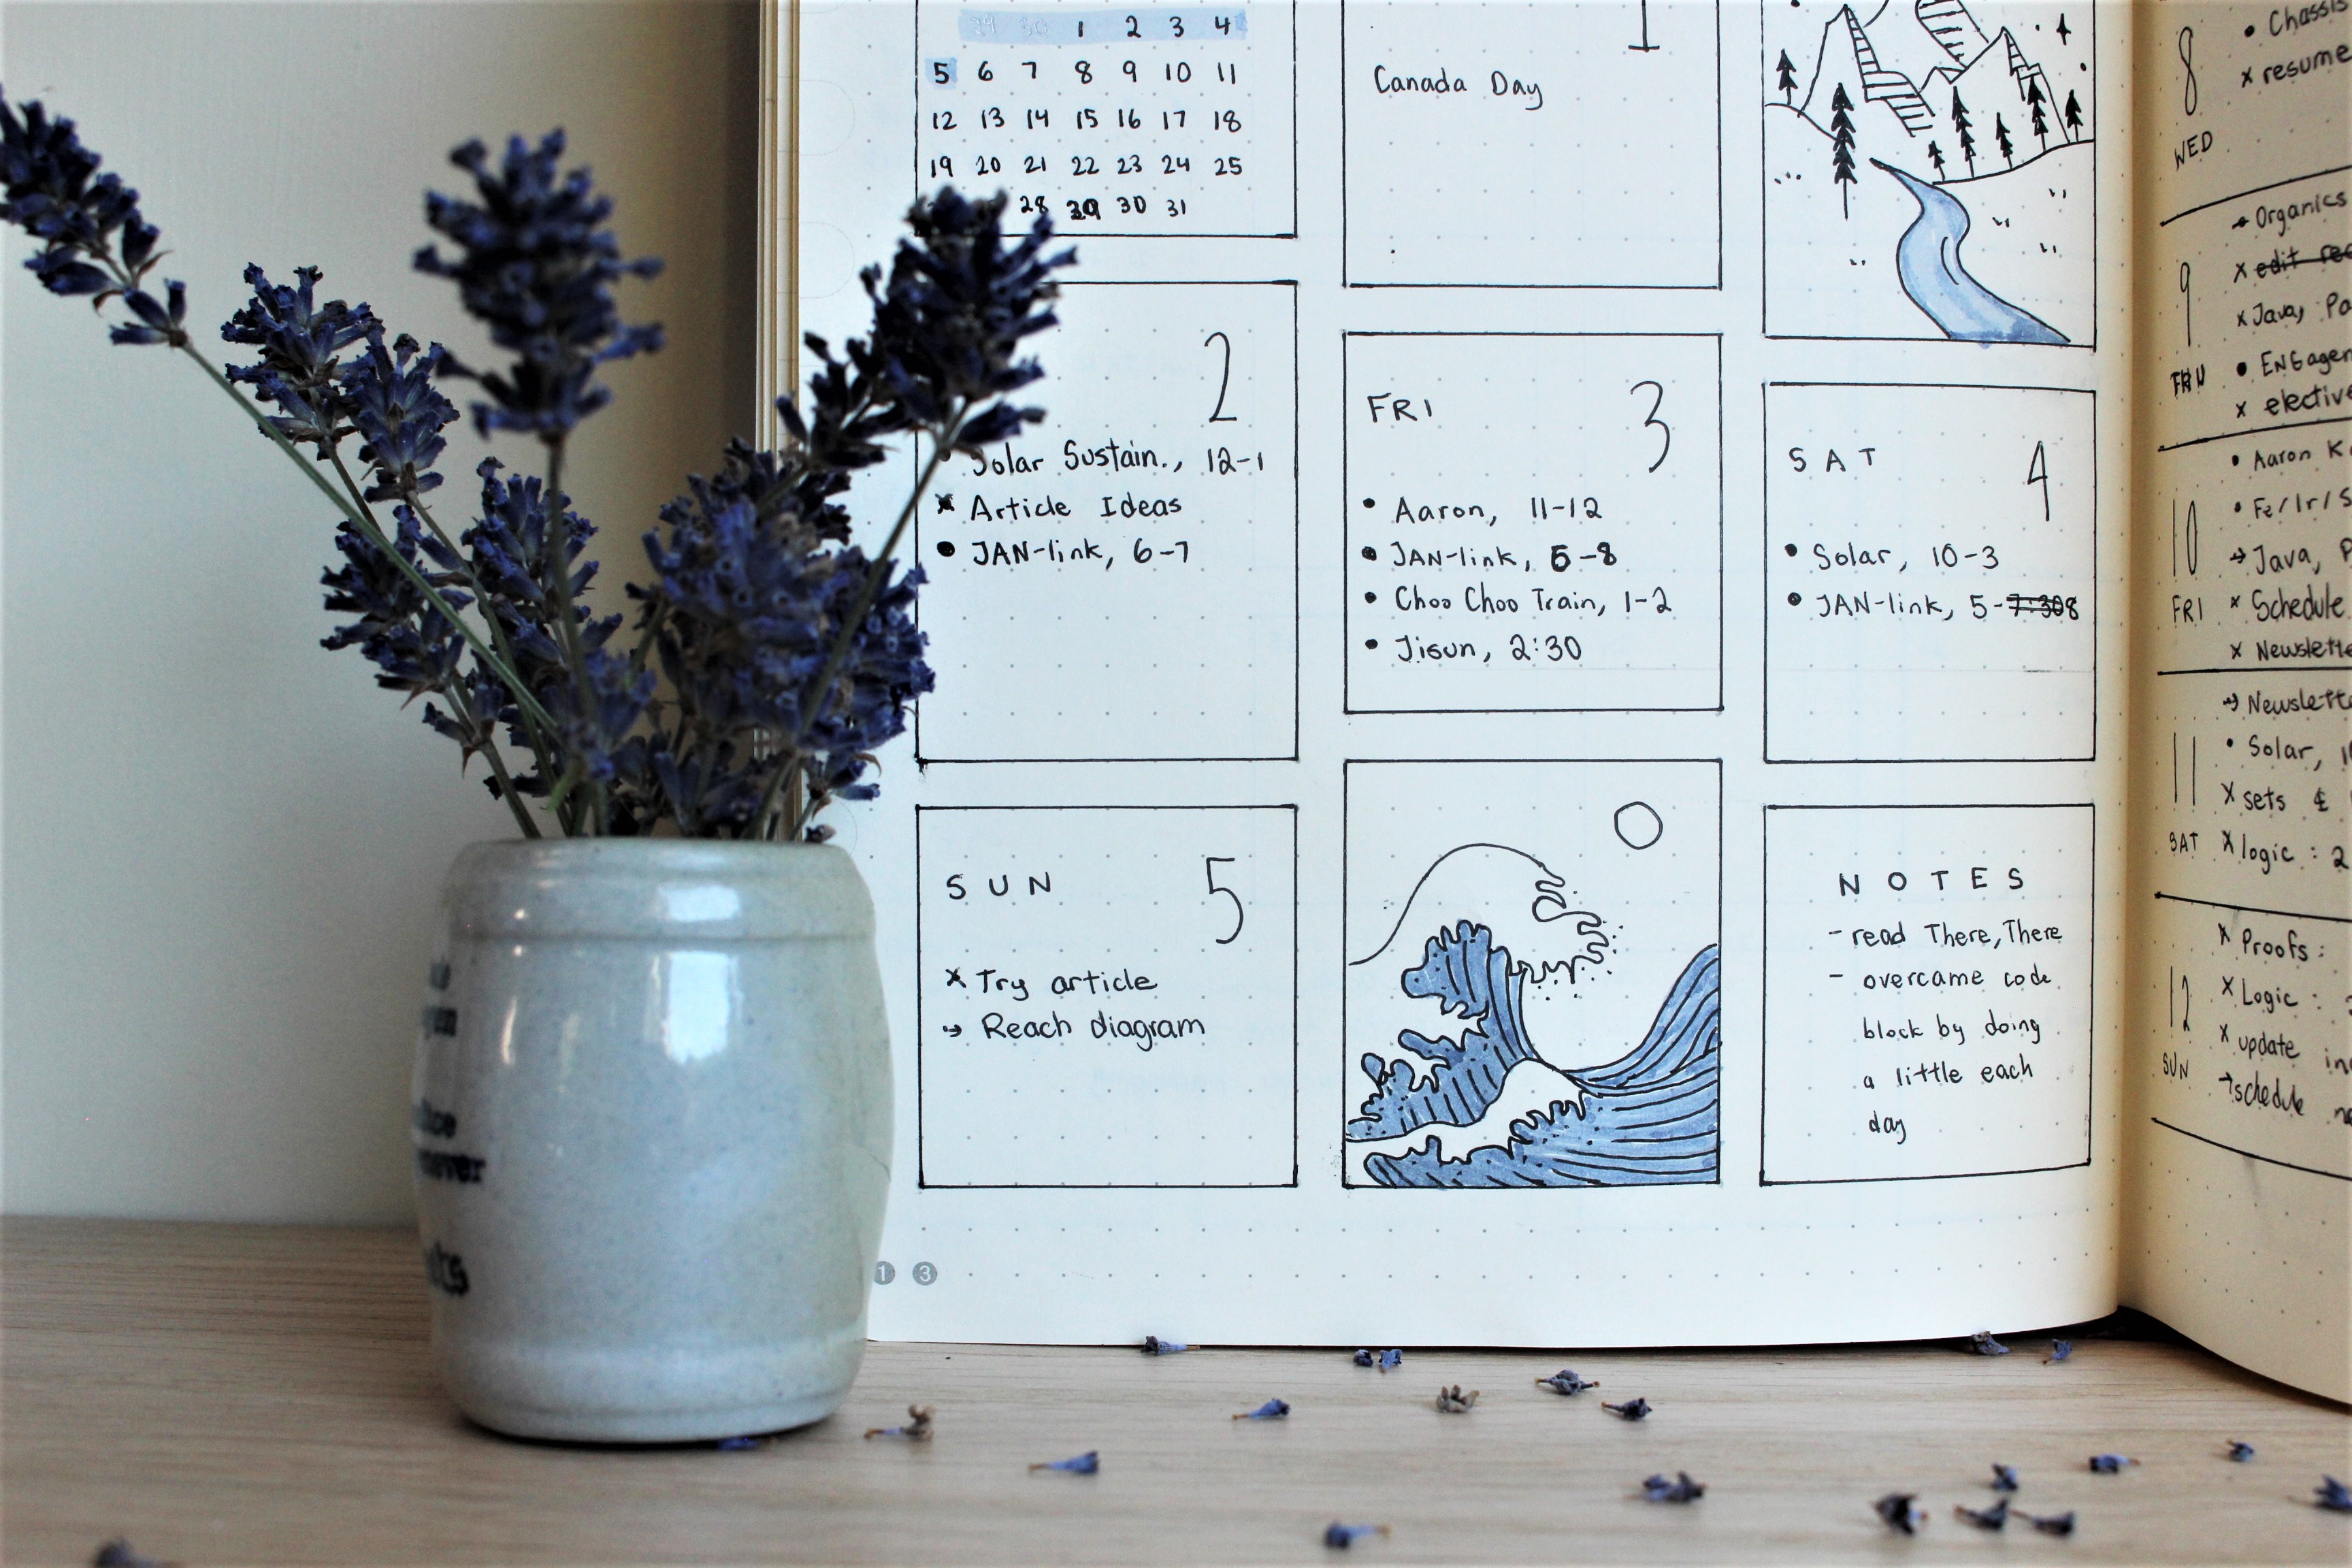 29 30 1 2 3 4
5 6 7 8 9 10 11
12 13 14 15 16 17 18
19 20 21 22 23 24 25
28 29 30 31
1
Canada Day
2
Solar Sustain., 12-1
x Article Ideas
• JAN-link, 6-7
FRI 3
• Aaron, 11-12
• JAN-link, 5-8
• Choo Choo Train, 1-2
• Jisun, 2:30
SAT 4
• Solar, 10-3
• JAN-link, 5-7:30 8
SUN 5
x Try article
→ Reach diagram
NOTES
- read There, There
- overcame code
block by doing
a little each
day
13
8
WED
• Chassis
x resume
9
THU
→ Organics
x edit
x Java,
• ENGagen
x elective
10
FRI
• Aaron K
• Fe/Ir/S
→ Java, P
x Schedule
x Newslette
11
SAT
→ Newslette
• Solar,
x sets &
x logic: 2
12
SUN
x Proofs:
x Logic:
x update
→ schedule